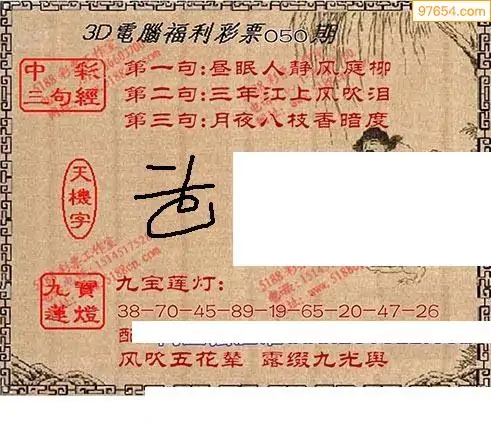 97654.com
3D電腦福利彩票050期
中彩
三句經
第一句:昼眠人静风庭柳
第二句:三年江上风吹泪
第三句:月夜八枝香暗度
天機字
九寶
蓮燈
九宝莲灯:
38-70-45-89-19-65-20-47-26
风吹五花辇 露缀九光舆